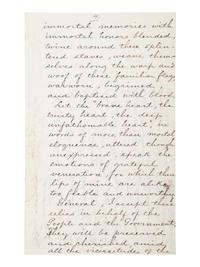 immortal memories with
immortal honors blended,
twine around these splin-
tered staves, weave them-
selves along the warp and
woof of these familiar flags,
war-worn, begrimed
and baptized with blood.
Let the "brave heart, the
trusty heart, the deep
unfathomable heart," in
words of more than mortal
eloquence, uttered though
unexpressed, speak the
emotions of grateful
veneration, for which these
lips of mine are alike
too feeble and unworthy.
General, I accept these
relics in behalf of the
People and the Government.
They will be preserved
and cherished amid
all the vicissitudes of the